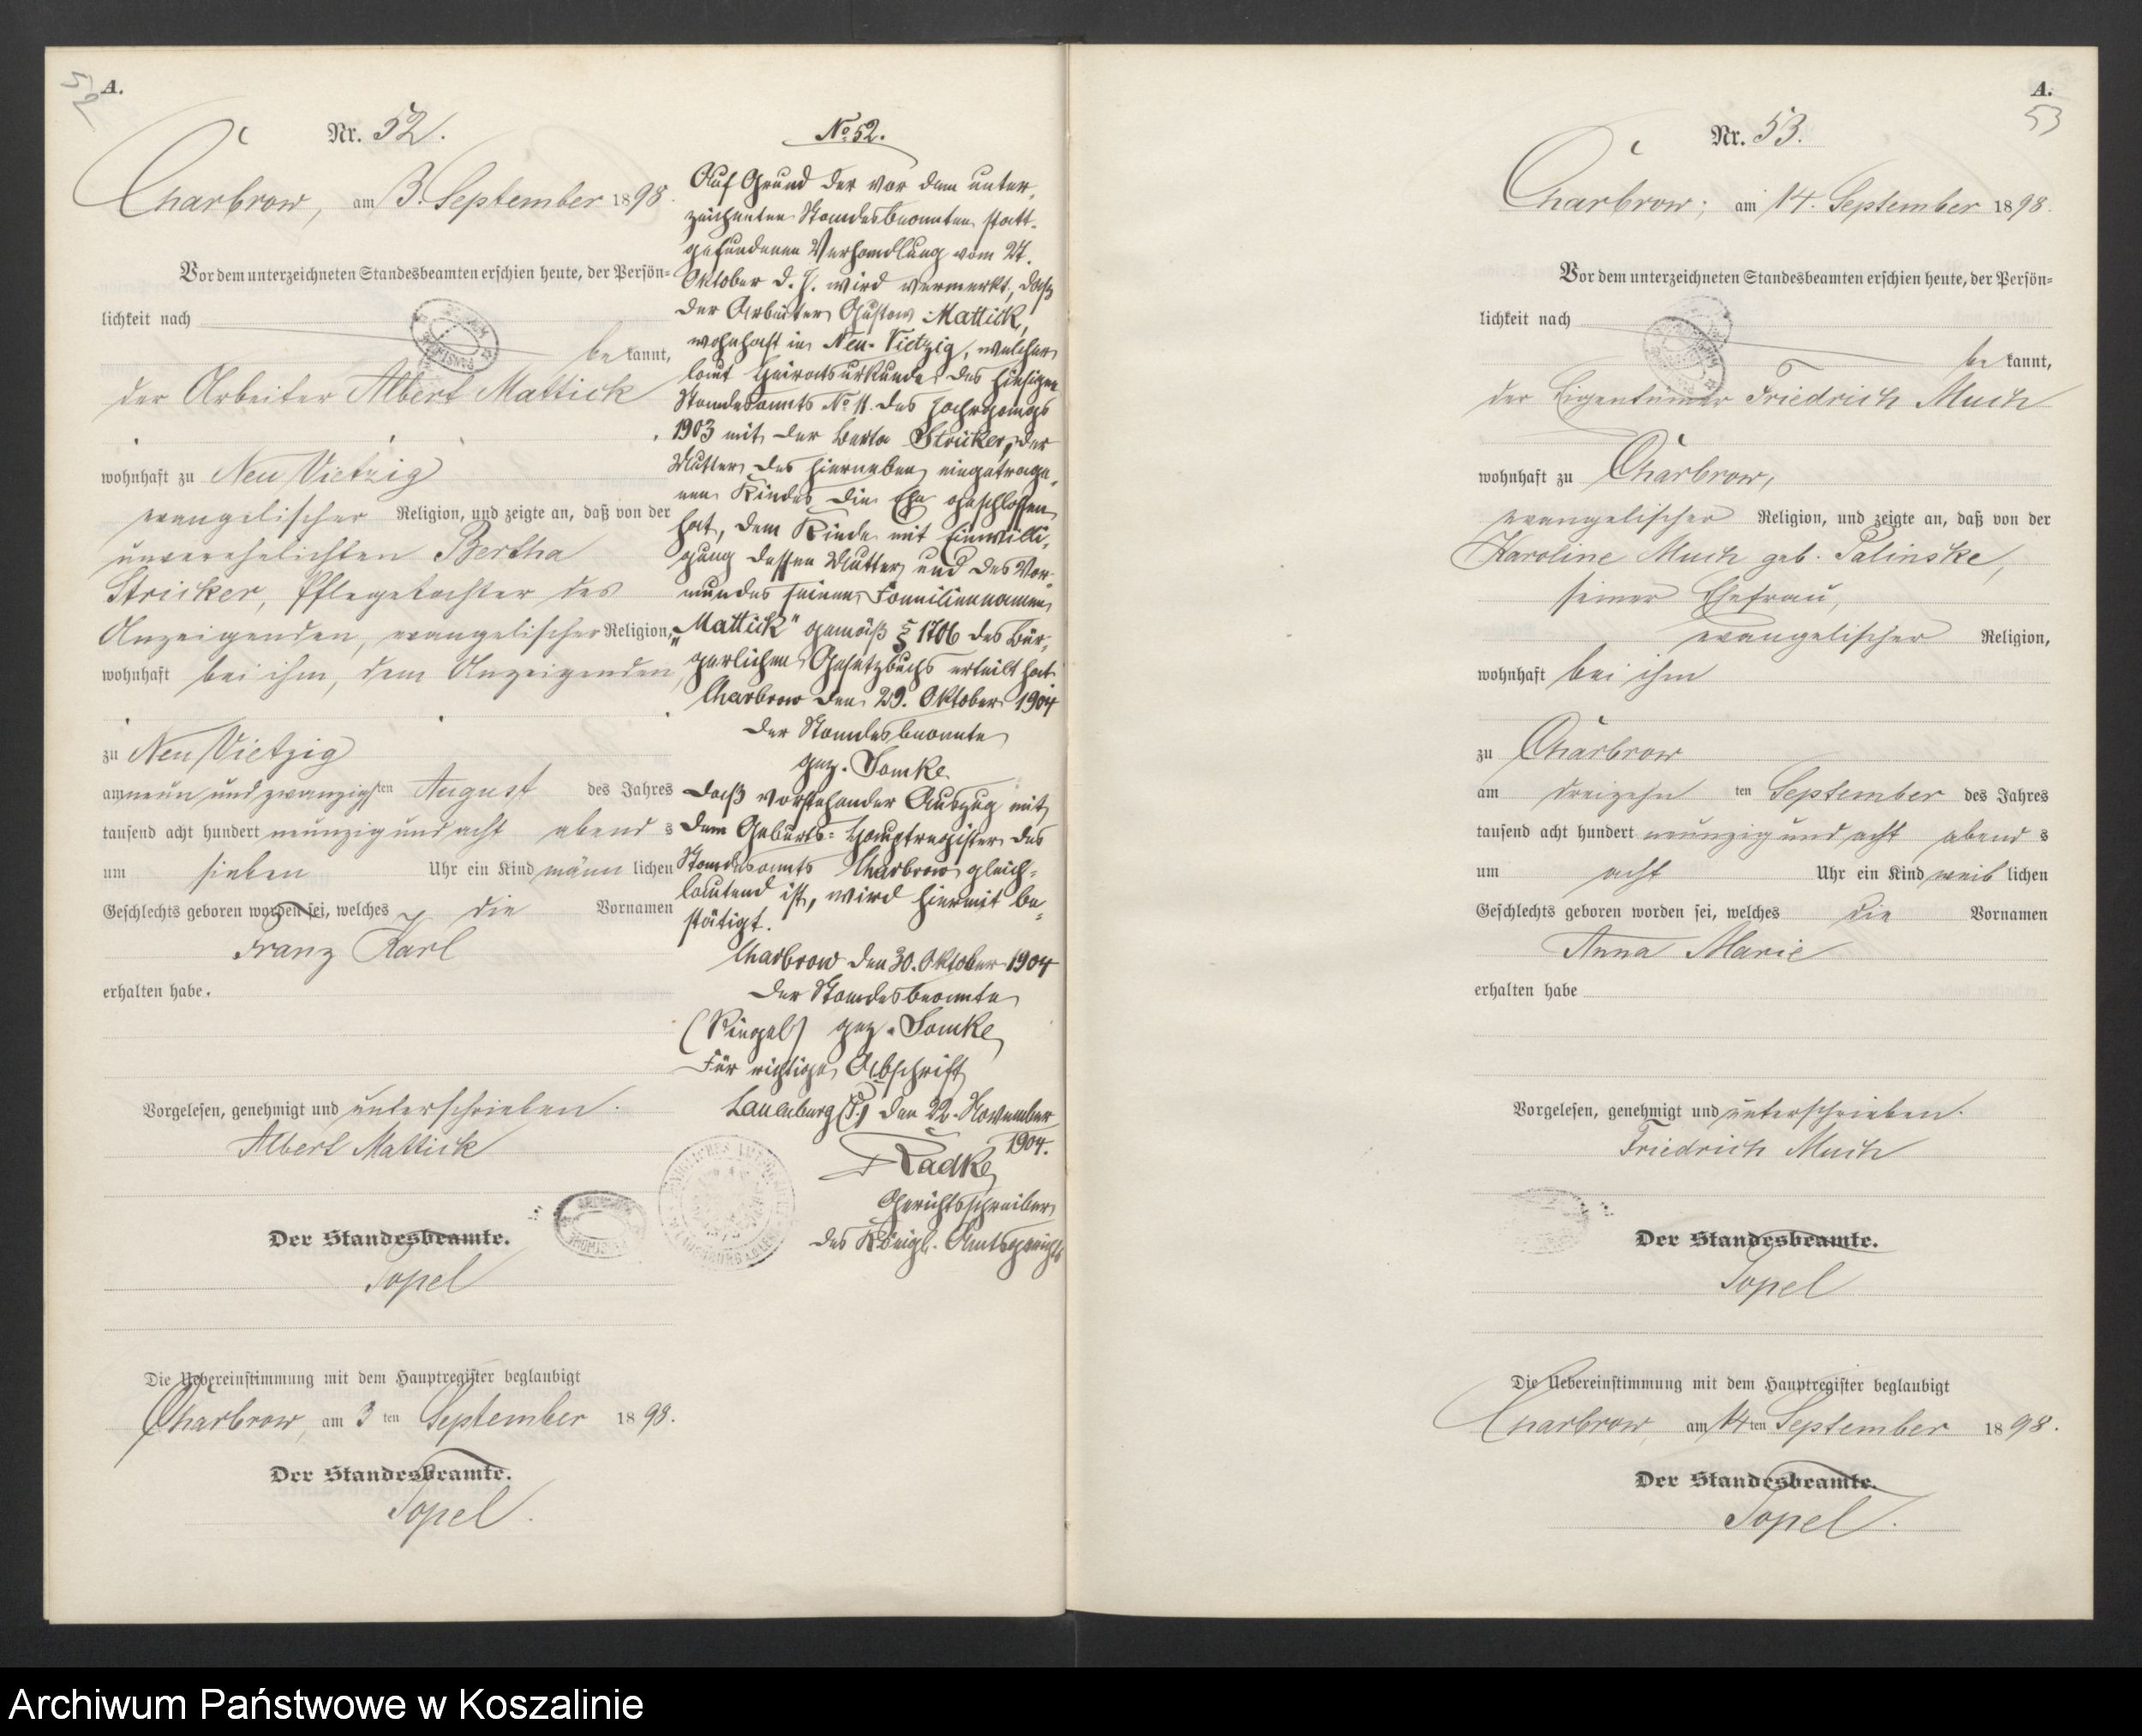 52
A.
Nr. 52.
Charbrow, am 3. September 1898.
Vor dem unterzeichneten Standesbeamten erschien heute, der Persön=
lichkeit nach
be kannt,
der Arbeiter Albert Mattick
wohnhaft zu Neu Vietzig
evangelischer Religion, und zeigte an, daß von der
unverehelichten Bertha
Stricker, Pflegetochter des
Anzeigenden, evangelischer Religion,
wohnhaft bei ihm, dem Anzeigenden,
zu Neu Vietzig
am neun und zwanzigsten August des Jahres
tausend acht hundert neunzig und acht abend s
um sieben Uhr ein Kind männ lichen
Geschlechts geboren worden sei, welches die Vornamen
Franz Karl
erhalten habe.
Vorgelesen, genehmigt und unterschrieben.
Albert Mattick
Der Standesbeamte.
Topel
Die Uebereinstimmung mit dem Hauptregister beglaubigt
Charbrow, am 3 ten September 1898.
Der Standesbeamte.
Topel.
No 52.
Auf Grund der vor dem unter-
zeichneten Standesbeamten statt-
gefundenen Verhandlung vom 27.
Oktober d. J. wird vermerkt, daß
der Arbeiter Gustav Mattick,
wohnhaft in Neu-Vietzig, welcher
laut Heiratsurkunde des hiesigen
Standesamts No 11. des Jahrgangs
1903 mit der Berta Stricker, der
Mutter des hierneben eingetrage-
nen Kindes die Ehe geschlossen
hat, dem Kinde mit Einwilli-
gung dessen Mutter und des Vor-
mundes seinen Familiennamen
„Mattick" gemäß § 1706 des Bür-
gerlichen Gesetzbuchs erteilt hat.
Charbrow den 29. Oktober 1904
Der Standesbeamte
gez. Tomke
Daß vorstehender Auszug mit
dem Geburts=Hauptregister des
Standesamts Charbrow gleich=
lautend ist, wird hiermit be-
stätigt.
Charbrow den 30. Oktober 1904
Der Standesbeamte
(Siegel) gez. Tomke
Für richtige Abschrift
Lauenburg (P.) den 22. November
1904.
Radke
Gerichtsschreiber
des Königl. Amtsgerichts
A.
53
Nr. 53.
Charbrow, am 14. September 1898.
Vor dem unterzeichneten Standesbeamten erschien heute, der Persön=
lichkeit nach
be kannt,
der Eigentümer Friedrich Much
wohnhaft zu Charbrow,
evangelischer Religion, und zeigte an, daß von der
Karoline Much geb. Palinske,
seiner Ehefrau,
evangelischer Religion,
wohnhaft bei ihm
zu Charbrow
am dreizehn ten September des Jahres
tausend acht hundert neunzig und acht abend s
um acht Uhr ein Kind weib lichen
Geschlechts geboren worden sei, welches die Vornamen
Anna Marie
erhalten habe
Vorgelesen, genehmigt und unterschrieben.
Friedrich Much
Der Standesbeamte.
Topel
Die Uebereinstimmung mit dem Hauptregister beglaubigt
Charbrow, am 14ten September 1898.
Der Standesbeamte.
Topel.
Archiwum Państwowe w Koszalinie